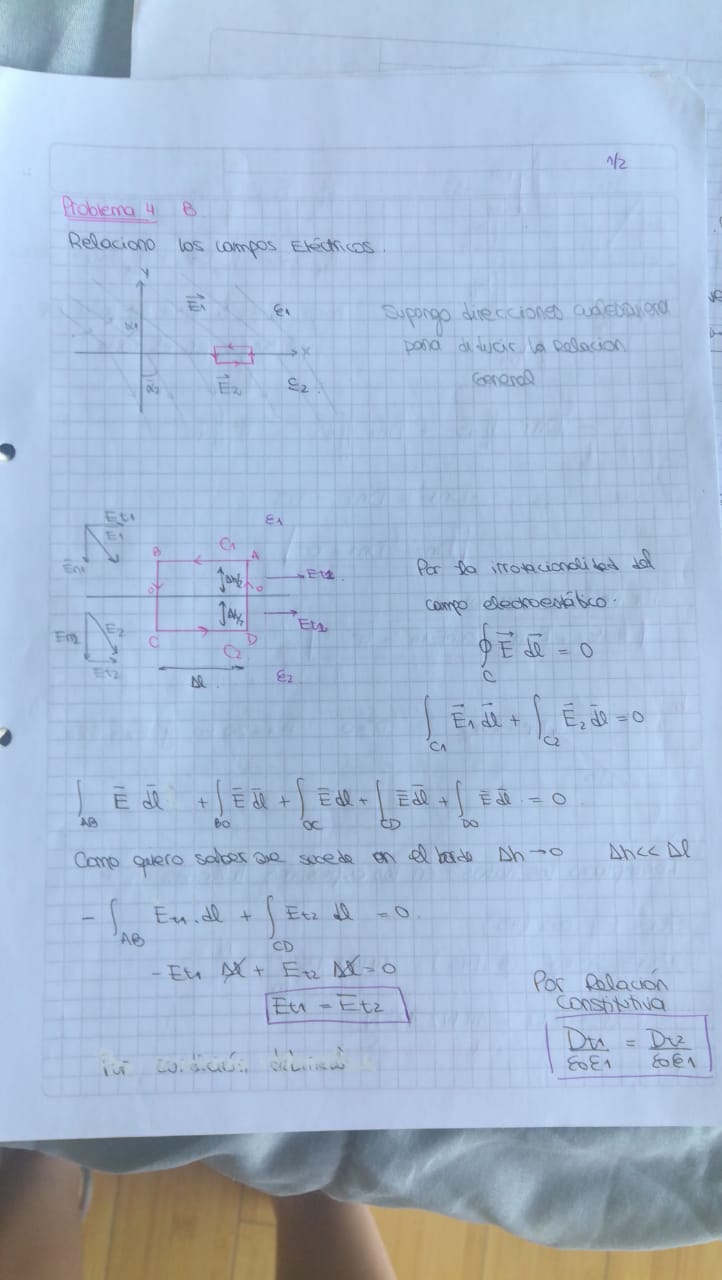 1/2
Problema 4 B
Relaciono los campos Eléctricos.
Y
E⃗1
ε1
α1
X
E⃗2
ε2
α2
Supongo direcciones
para la Relacion
General
Et1
E1
En1
ε1
B
C1
A
Δh/2
Et1
En2
E2
Et2
Δh/2
C
C2
D
Δl
ε2
Por la irrotacionalidad del
campo electroestático.
∮C E⃗ d̄l = 0
∫C1 Ē1 d̄l + ∫C2 Ē2 d̄l = 0
∫AB Ē d̄l + ∫BO Ē d̄l + ∫OC Ē dl + ∫CD Ē d̄l + ∫DO Ē d̄l = 0
Como quero saber que sucede en el borde Δh→0 Δh<<Δl
- ∫AB Et1 . dl + ∫CD Et2 dl = 0.
- Et1 Δl + Et2 Δl = 0
Et1 = Et2
Por Relación
Constitutiva
Dt1/ε0ε1 = Dt2/ε0ε1